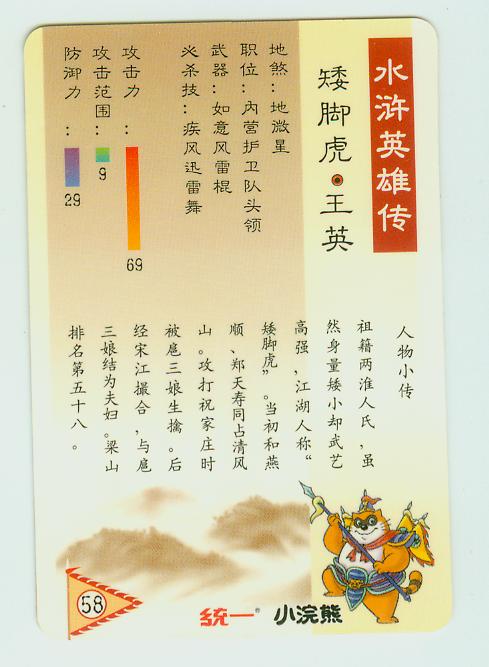 水浒英雄传
矮脚虎·王英
地煞：地微星
职位：内营护卫队头领
武器：如意风雷棍
必杀技：疾风迅雷舞
攻击力：
69
攻击范围：
9
防御力：
29
人物小传
祖籍两淮人氏，虽
然身量矮小却武艺
高强，江湖人称“
矮脚虎”。当初和燕
顺、郑天寿同占清风
山。攻打祝家庄时
被扈三娘生擒。后
经宋江撮合，与扈
三娘结为夫妇。梁山
排名第五十八。
58
统一®
小浣熊